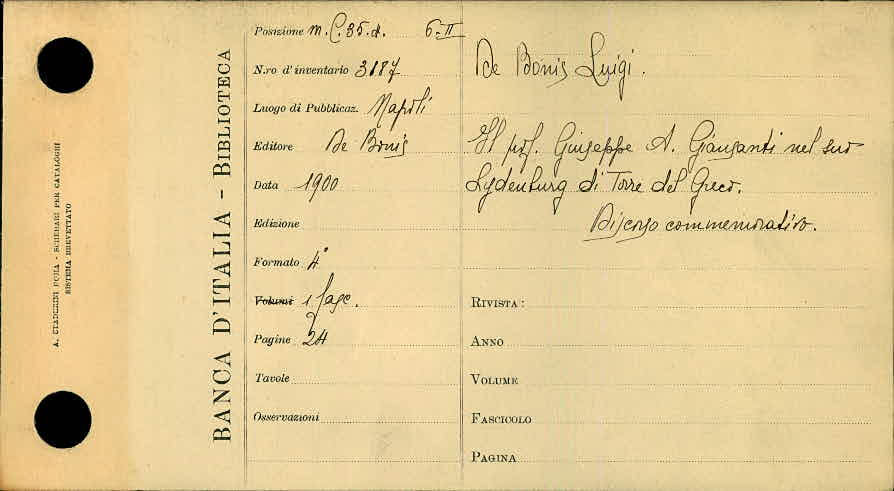 A. STADERINI ROMA - SCHEDARI PER CATALOGHI
SISTEMA BREVETTATO
BANCA D'ITALIA - BIBLIOTECA
Posizione m. C. 35. d. 6-II
N.ro d'inventario 3187
Luogo di Pubblicaz. Napoli
Editore De Bonis
Data 1900
Edizione
Formato 4°
Volumi 1 fasc.
Pagine 24
Tavole
Osservazioni
De Bonis Luigi.
Il prof. Giuseppe A. Giansanti nel suo
Lydenburg di Torre del Greco.
Discorso commemorativo.
RIVISTA:
ANNO
VOLUME
FASCICOLO
PAGINA